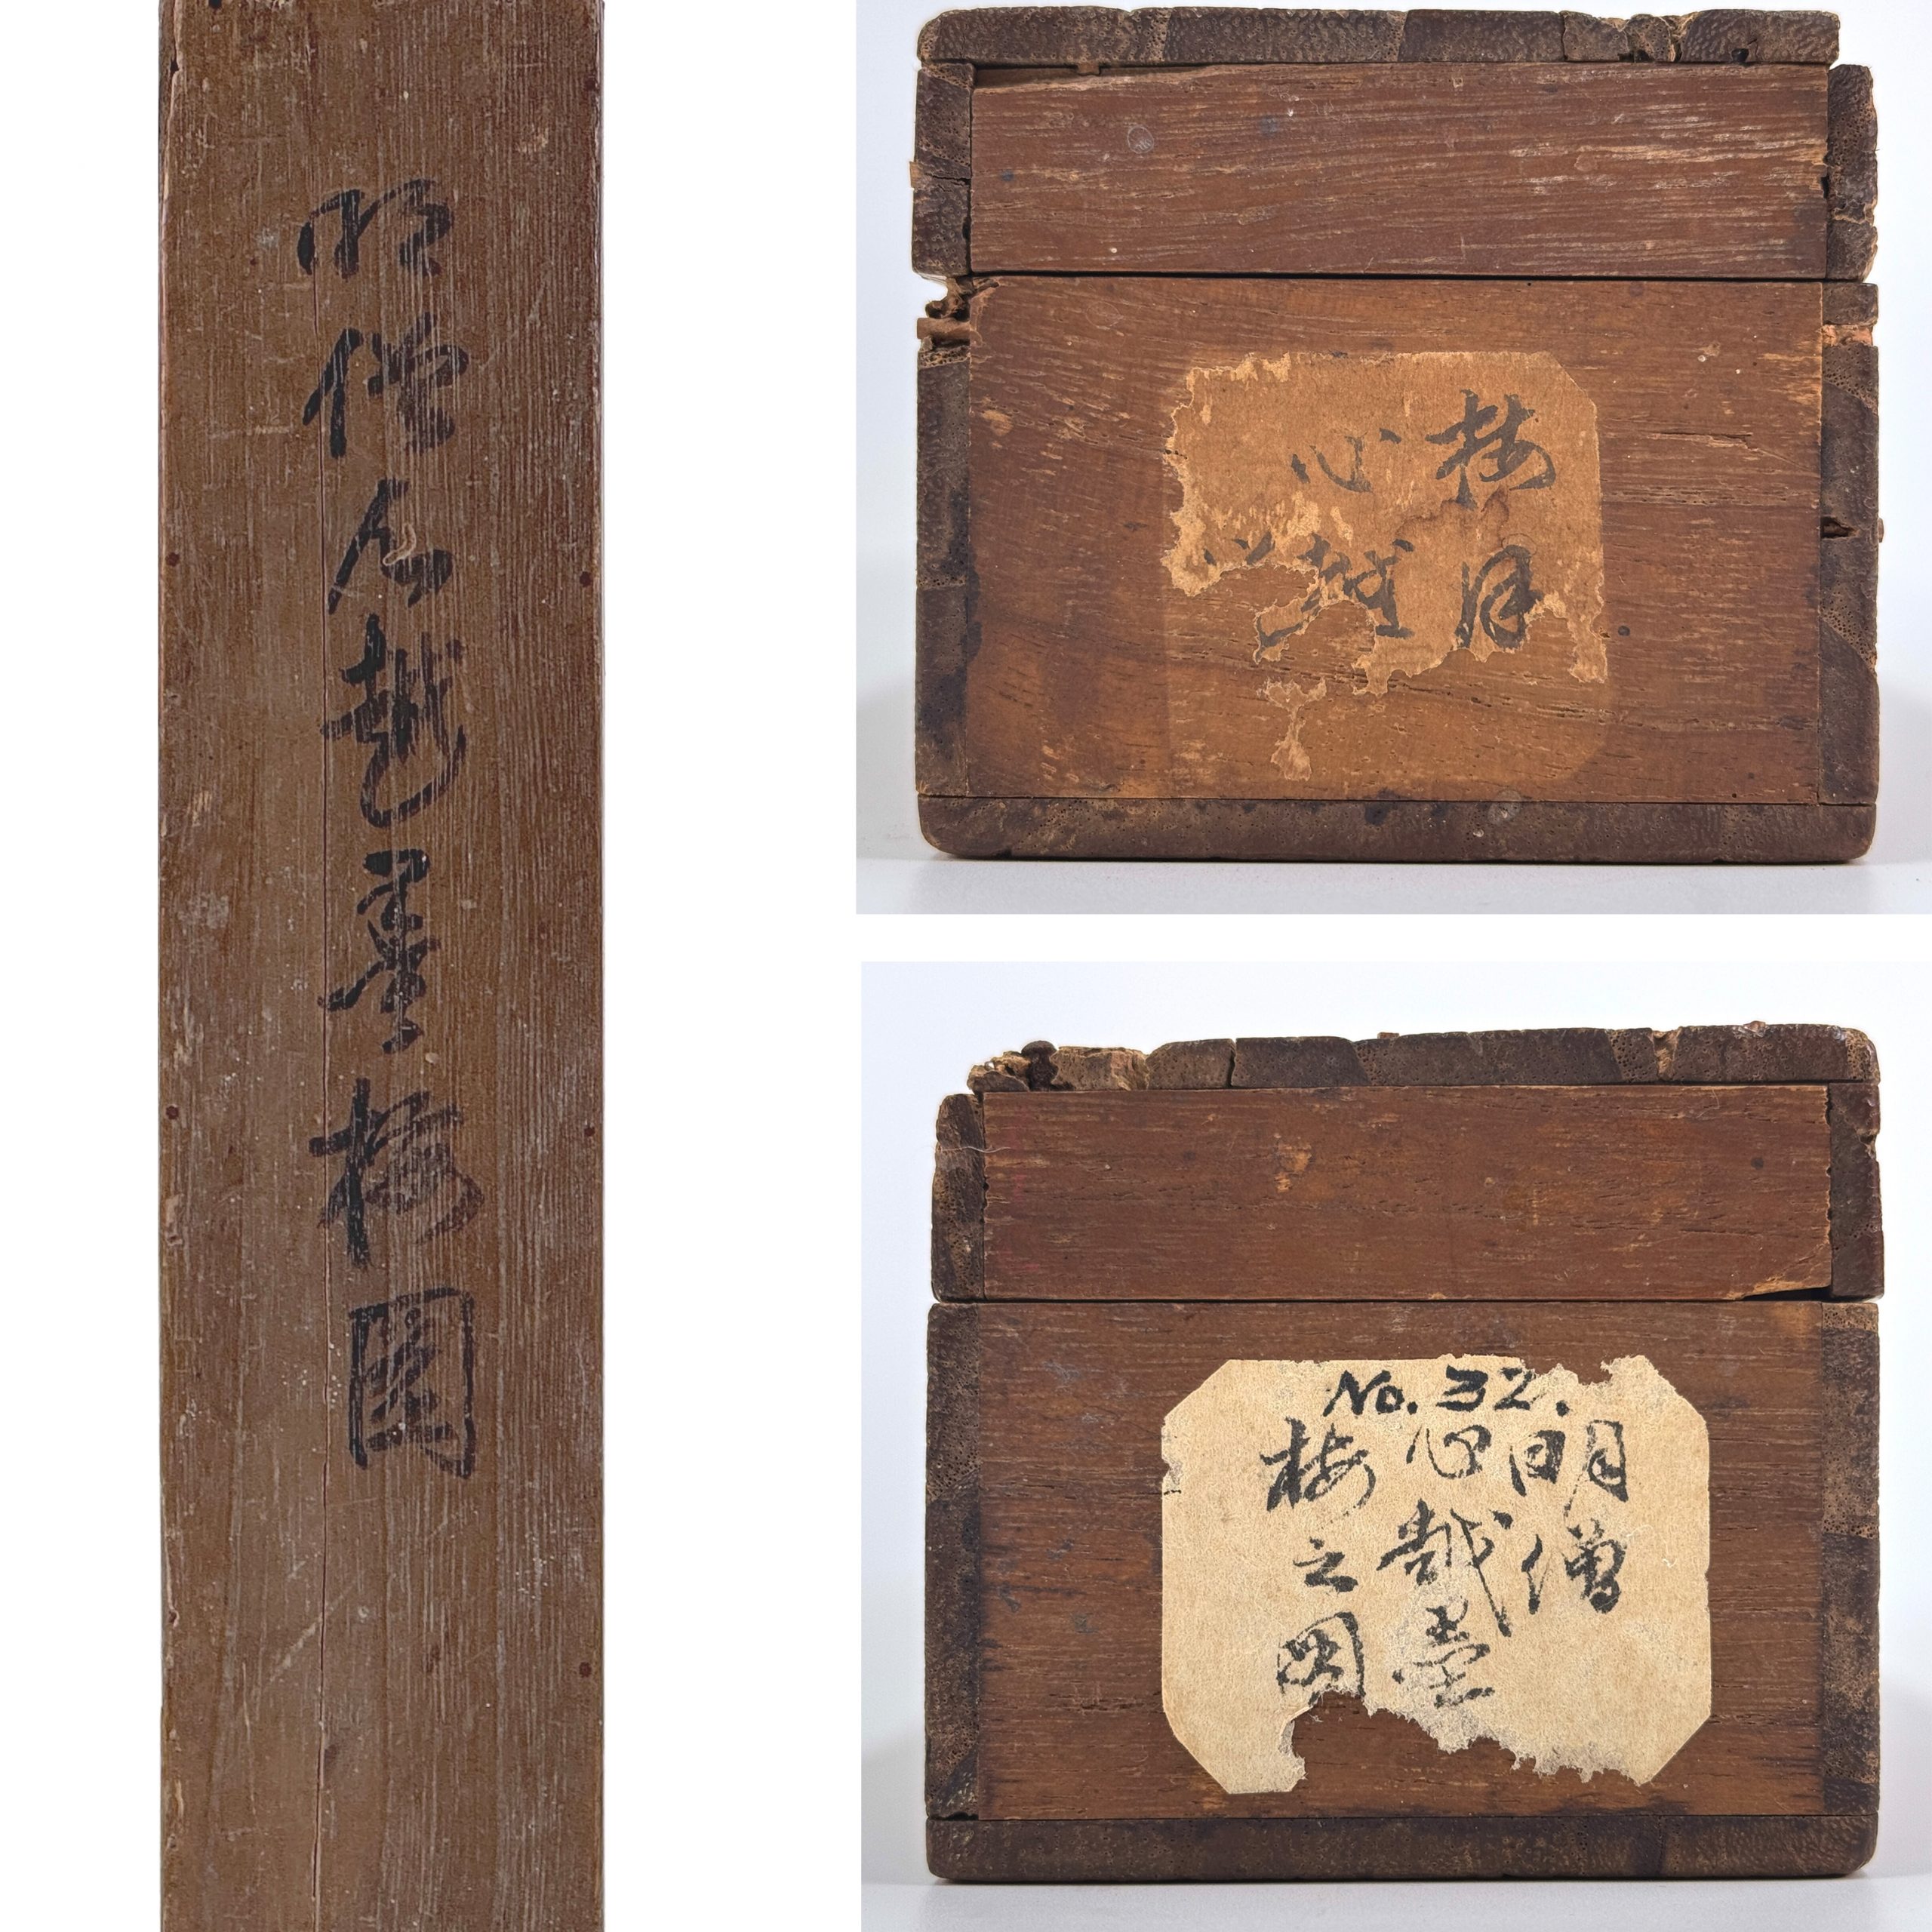 明僧心越墨梅図
梅月
心越
No.32.
明僧
心越畫
梅之図